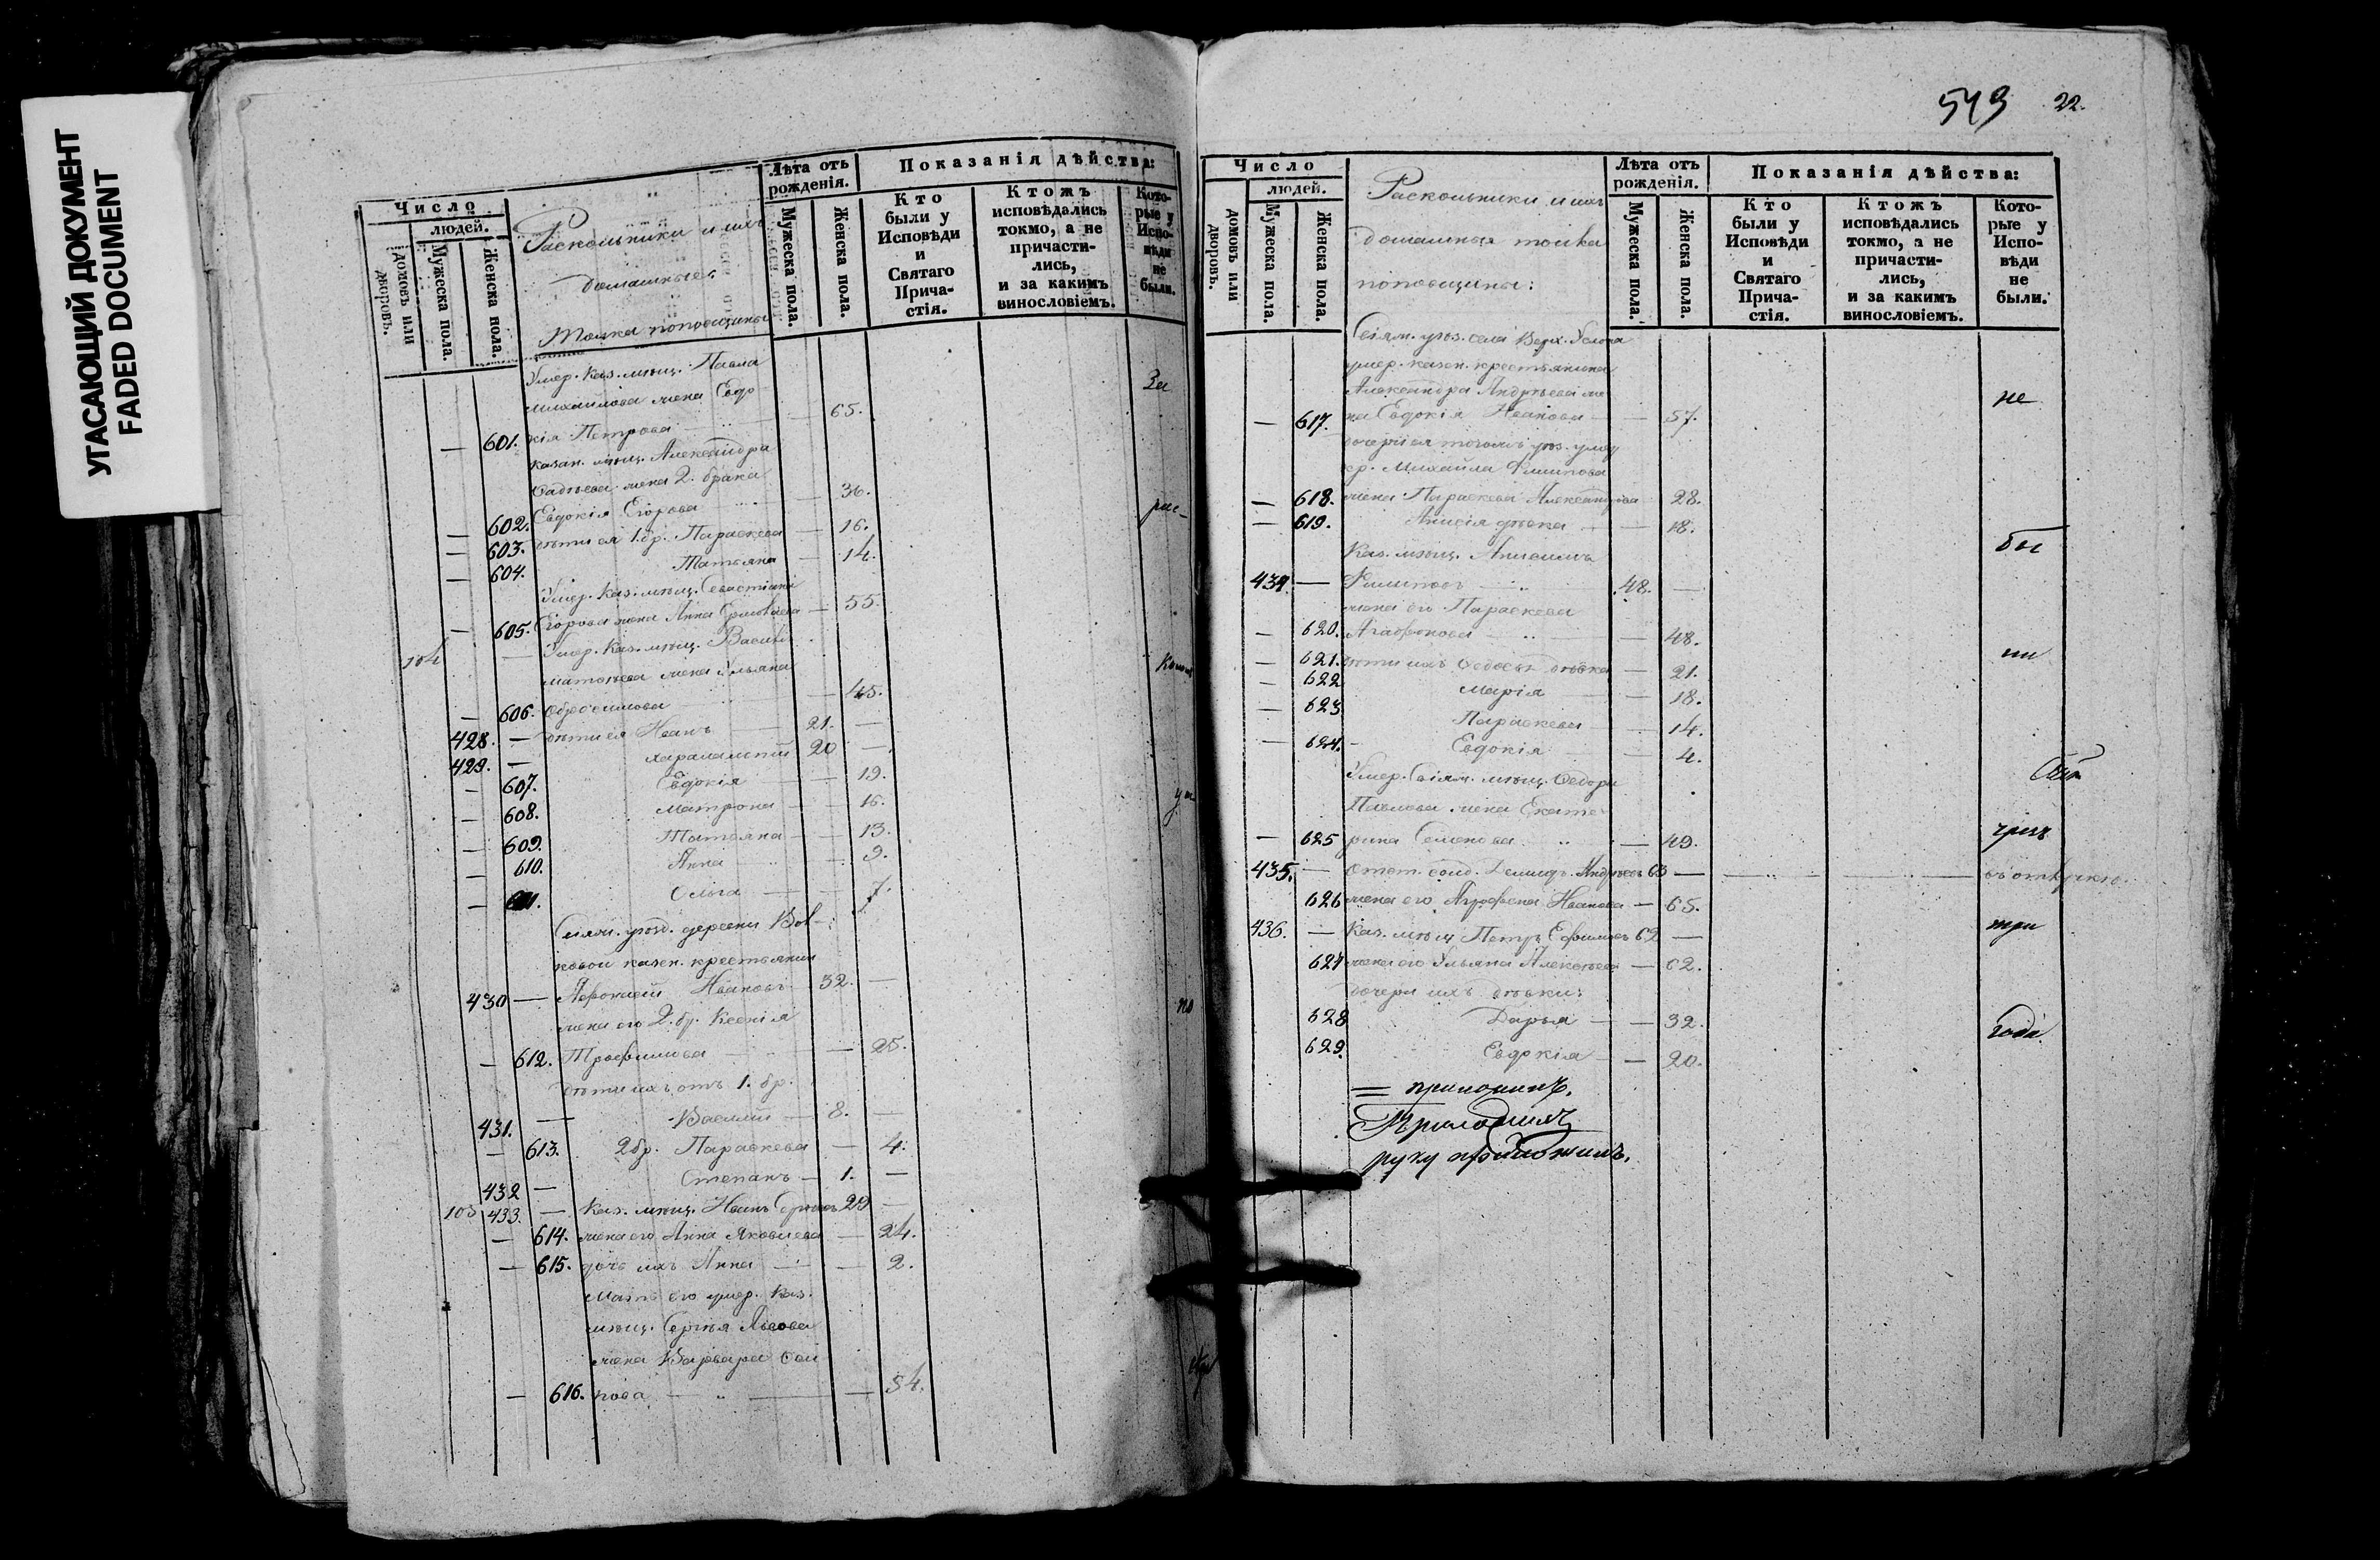 УГАСАЮЩИЙ ДОКУМЕНТ
FADED DOCUMENT
Число
людей.
домовъ или дворовъ.
Мужеска пола.
Женска пола.
Раскольники и ихъ
домашные
толка поповщины
Лѣта отъ рожденія.
Мужеска пола.
Женска пола.
Показанія дѣйства:
Кто были у Исповѣди и Святаго Прича-стія.
Ктожъ исповѣдались токмо, а не причасти-лись, и за какимъ винословіемъ.
Кото-рые у Испо-вѣди не были.
Умер. Каз. мѣщ. Павла
Михайлова жена Евдо-
— 601. кія Петрова — 65.
Казан. мѣщ. Александра
жена 2. брака
— 602. Евдокія Егорова — 36.
— 603. дѣти ея 1. бр. Параскева — 16.
— 604. Татьяна — 14.
Умер. Каз. мѣщ. Севастіана
— 605. Егорова жена Анна — 55.
104 Умер. Каз. мѣщ. Василія
жена Ульяна
— 606. — 45.
428. — дѣти ея Иванъ — 21. —
429. — Харалампій 20 —
— 607. Евдокія — 19.
— 608. Матрона — 16.
— 609. Татьяна — 13.
— 610. Анна — 9.
— 611. Ольга — 7.
Свіяж. уѣзд. деревни Вол-
ковой казен. крестьянин
430 — Ивановъ 32. —
жена его 2. бр. Ксенія
— 612. Трофимова — 25.
дѣти ихъ отъ 1. бр.
431. — Василій — 8. —
— 613. 2 бр. Параскева — 4.
432 — Степанъ — 1. —
105 433. — Каз. мѣщ. Иванъ 29 —
— 614. жена его Анна Яковлева — 24.
— 615. дочь ихъ Анна — 2.
Мать его умер. Каз.
мѣщ. Сергѣя Львова
жена Варвара
— 616. — 54.
За
рас-
по
549 22.
Число
людей.
домовъ или дворовъ.
Мужеска пола.
Женска пола.
Раскольники и ихъ
домашныя толка
поповщины:
Лѣта отъ рожденія.
Мужеска пола.
Женска пола.
Показанія дѣйства:
Кто были у Исповѣди и Святаго Прича-стія.
Ктожъ исповѣдались токмо, а не причасти-лись, и за какимъ винословіемъ.
Кото-рые у Испо-вѣди не были.
Свіяж. уѣз. села Верх. Услона
умер. казен. крестьянина
Александра Андрѣева же-
— 617. на Евдокія Иванова — 57.
умер
кр. Михайла Филипова
— 618. жена Параскева Александрова 28.
— 619. Анисія дѣвка — 18.
Каз. мѣщ. Анисимъ
434. — Филиповъ 48. —
жена его Параскева
— 620. Агафонова — 48.
— 621. дѣти ихъ Ѳедосья дѣвка — 21.
— 622 Марія — 18.
— 623 Параскева — 14.
— 624. Евдокія — 4.
Умер. Свіяж. мѣщ. Ѳедора
Павлова жена Екате-
— 625 рина Семенова — 49.
435. — Отст. солд. Демидъ Андрѣевъ 63 —
626 жена его Агрофена Иванова — 65.
436. — Каз. мѣщ Петръ Ефимовъ 62 —
627 жена его Ульяна Алексѣева — 62.
дочери ихъ дѣвки:
628 Дарья — 32.
629. Евдокія — 20.
не
бы
ли
чрезъ
три
года.
руку приложилъ.